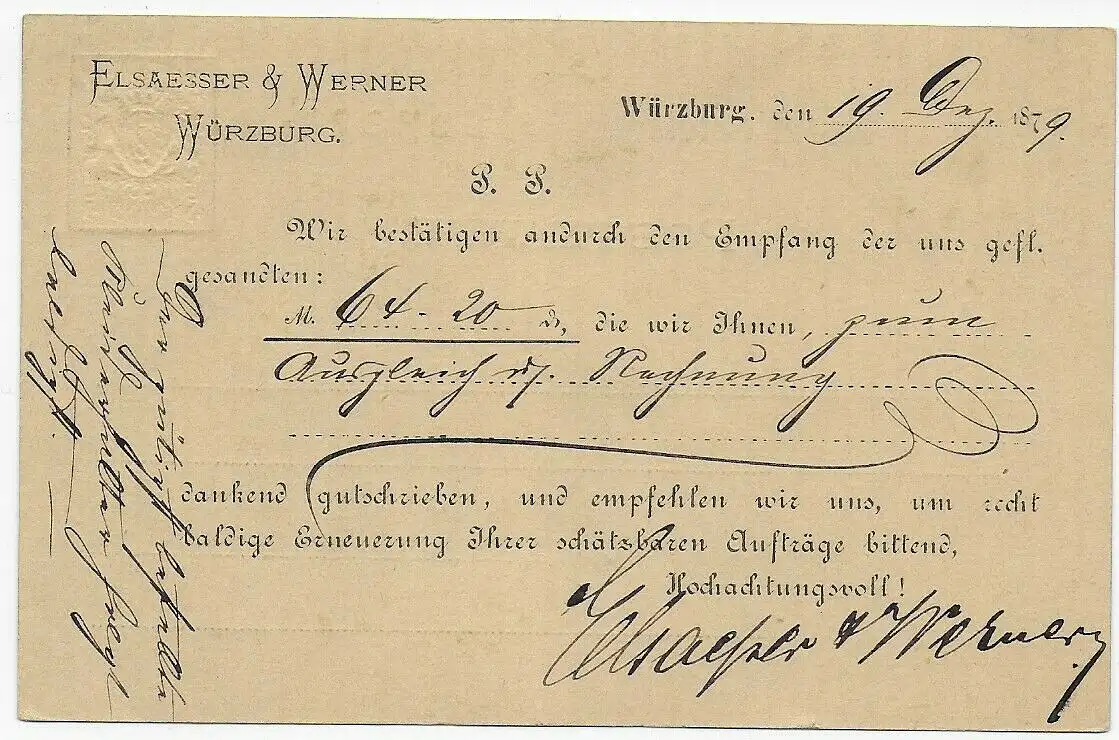 ELSAESSER & WERNER
WÜRZBURG.
Würzburg, den 19. Dez. 1879.
P. P.
Wir bestätigen andurch den Empfang der uns gefl.
gesandten:
M. 64.-20 ₰, die wir Ihnen, zum
Ausgleich d/. Rechnung
dankend gutschrieben, und empfehlen wir uns, um recht
baldige Erneuerung Ihrer schätzbaren Aufträge bittend,
Hochachtungsvoll!
Elsaesser & Werner
gütigst bestellte
folgt